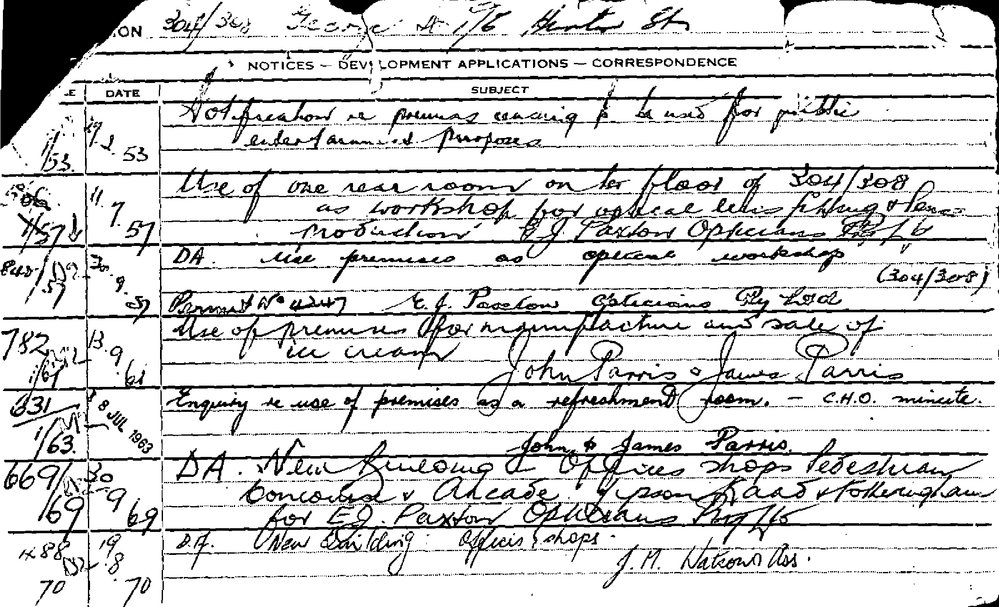 ON 304/308 George St 1/5 Hunter St
NOTICES — DEVELOPMENT APPLICATIONS — CORRESPONDENCE
E DATE SUBJECT
1/53. 2 53 Notification re premises ceasing to be used for public
entertainment purposes
1/57 11 7 57 Use of one rear room on 1st floor of 304/308
as workshop for optical lens fitting & lens
production E.J. Paxton Opticians Pty Ltd
57 30 9 57 DA. Use premises as optical workshop
(304/308)
Permit No 4247 E.J. Paxton Opticians Pty Ltd
782 1/61 13 9 61 Use of premises for manufacture and sale of
ice cream
John Parris & James Parris
631 1/63. 8 JUL 1963 Enquiry re use of premises as a refreshment room. — C.H.O. minute.
John & James Parris.
669/ /69 30 9 69 DA. New Building Offices shops Pedestrian
Concourse & Arcade
for E.J. Paxton Opticians Pty Ltd
70 19 8 70 New Building: Offices shops.
J.M. Watson & Ass.